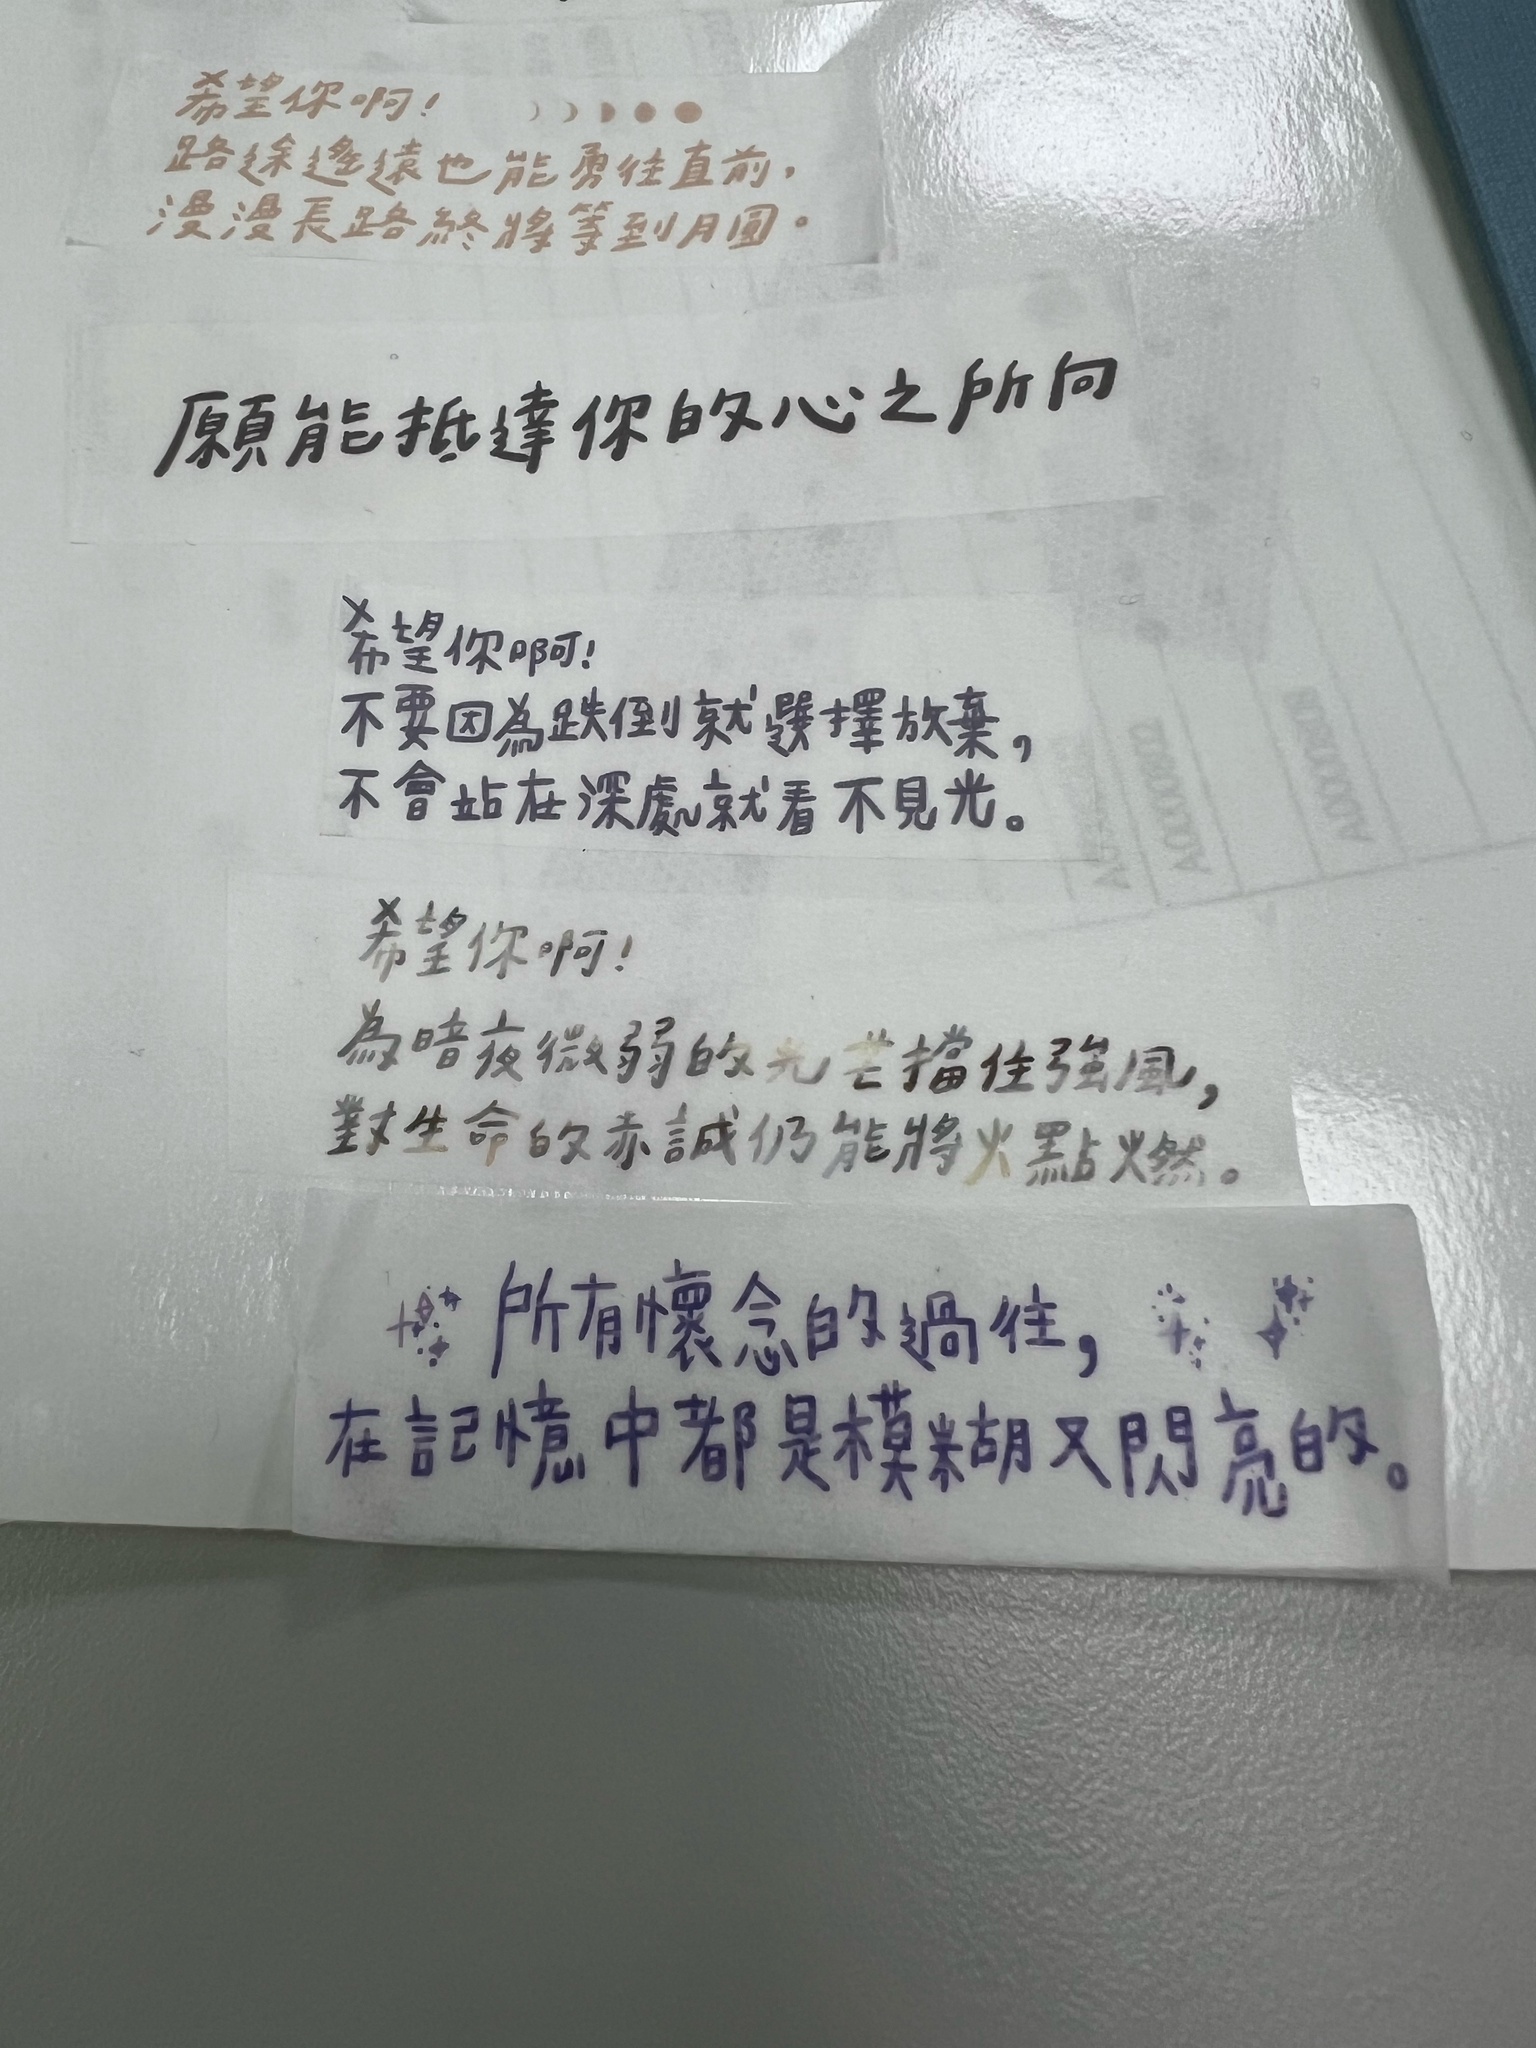 希望你啊!
路途遙遠也能勇往直前,
漫漫長路終將等到月圓。
願能抵達你的心之所向
希望你啊!
不要因為跌倒就選擇放棄,
不會站在深處就看不見光。
希望你啊!
為暗夜微弱的光芒擋住強風,
對生命的赤誠仍能將火點燃。
所有懷念的過往,
在記憶中都是模糊又閃亮的。